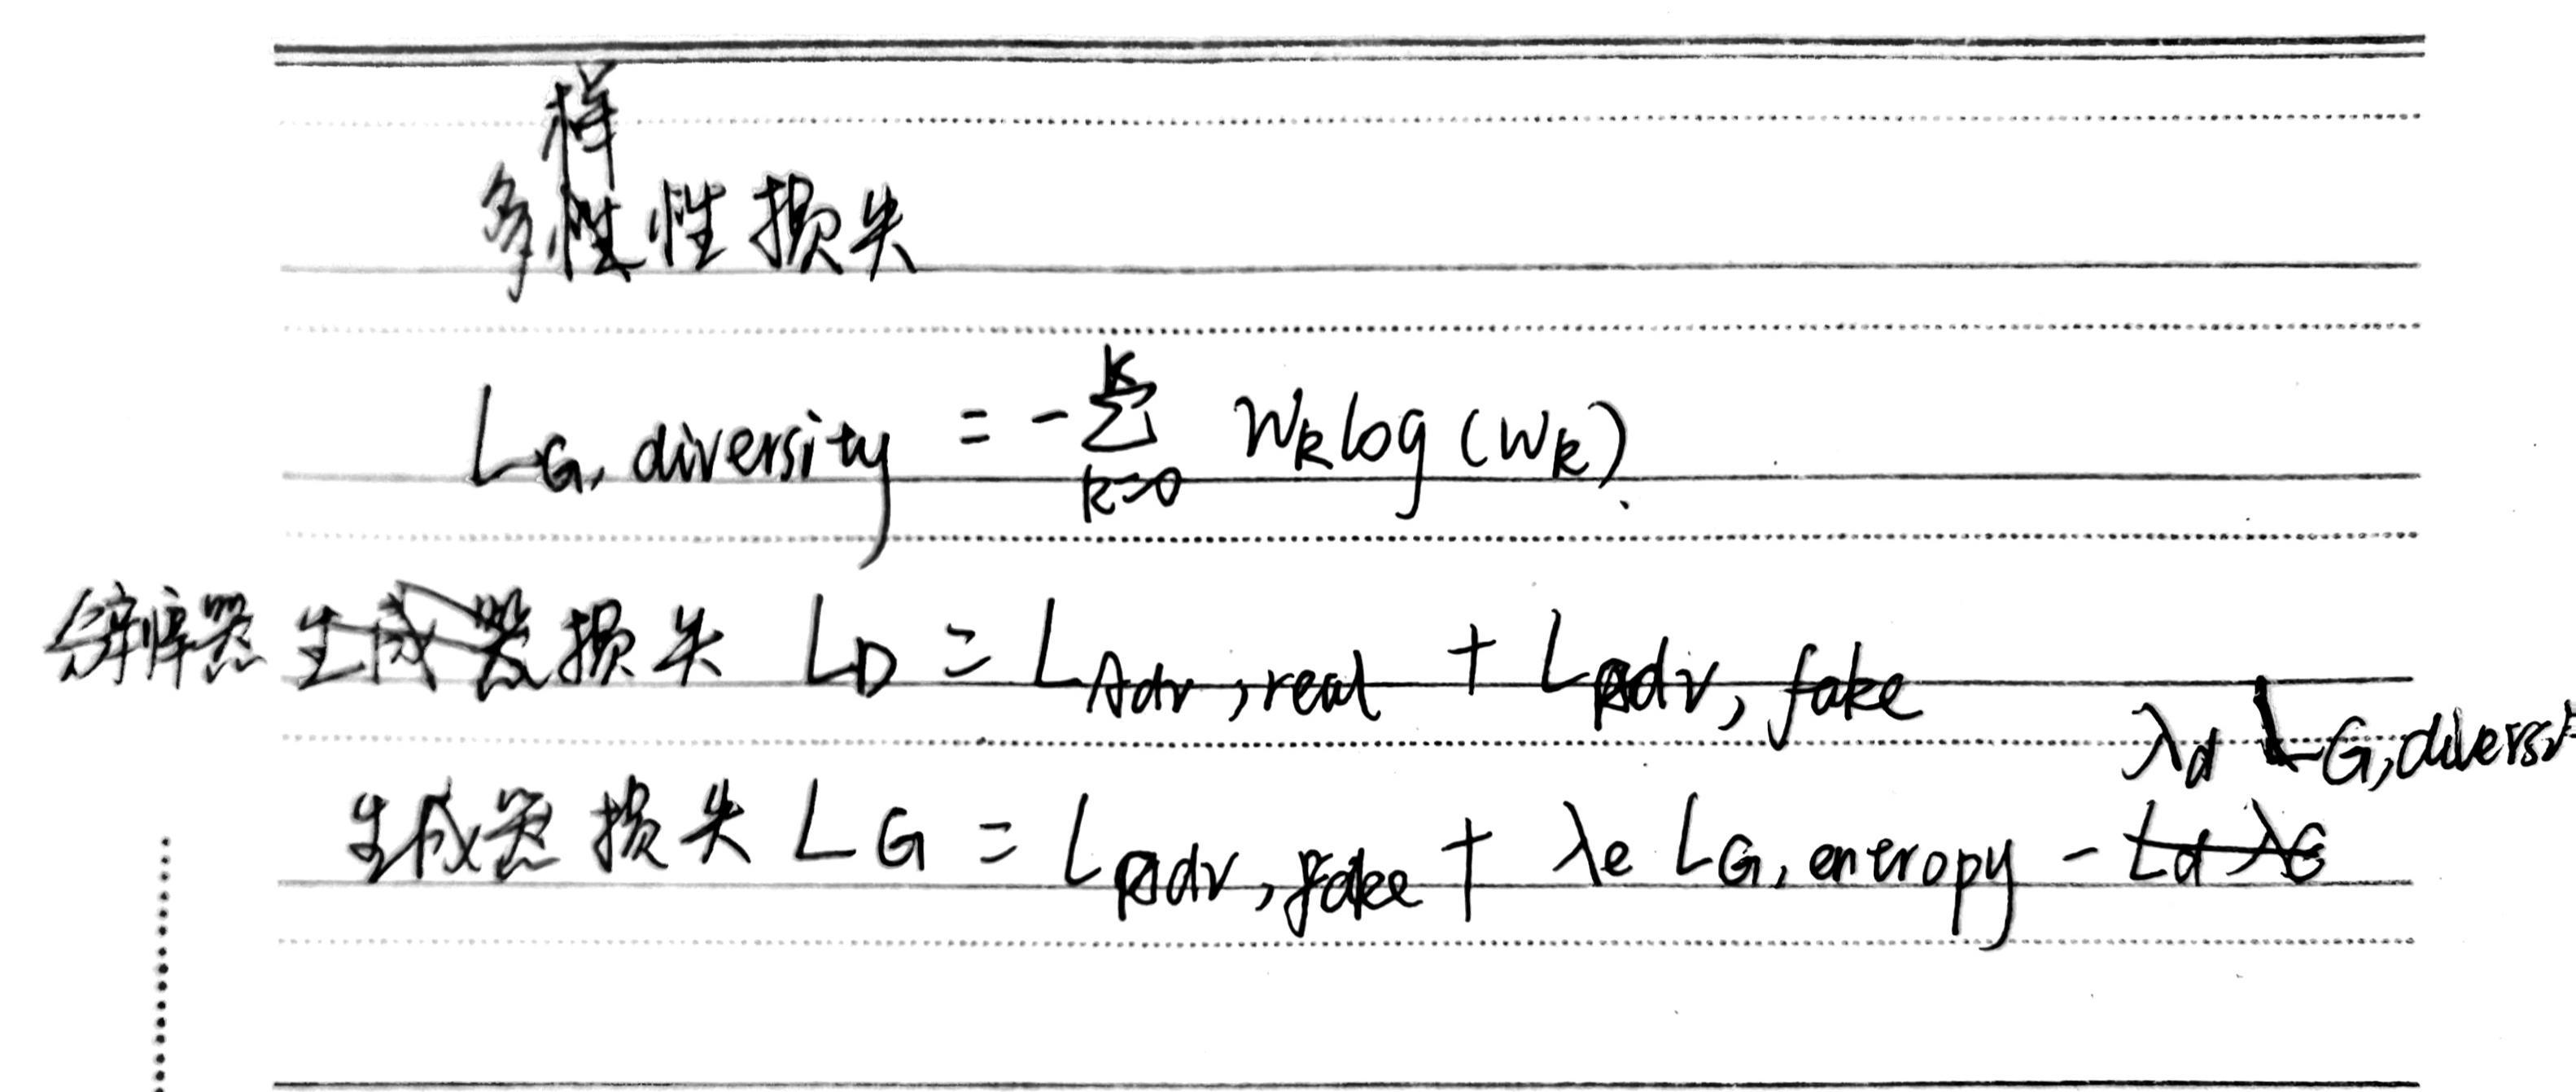 多样性损失
L_{G, diversity} = -\sum_{k=0}^{K} W_k log (W_k).
损失 L_D = L_{Adv, real} + L_{Adv, fake}
生成器损失 L_G = L_{Adv, fake} + λ_e L_{G, entropy} - λ_d L_{G, diversi